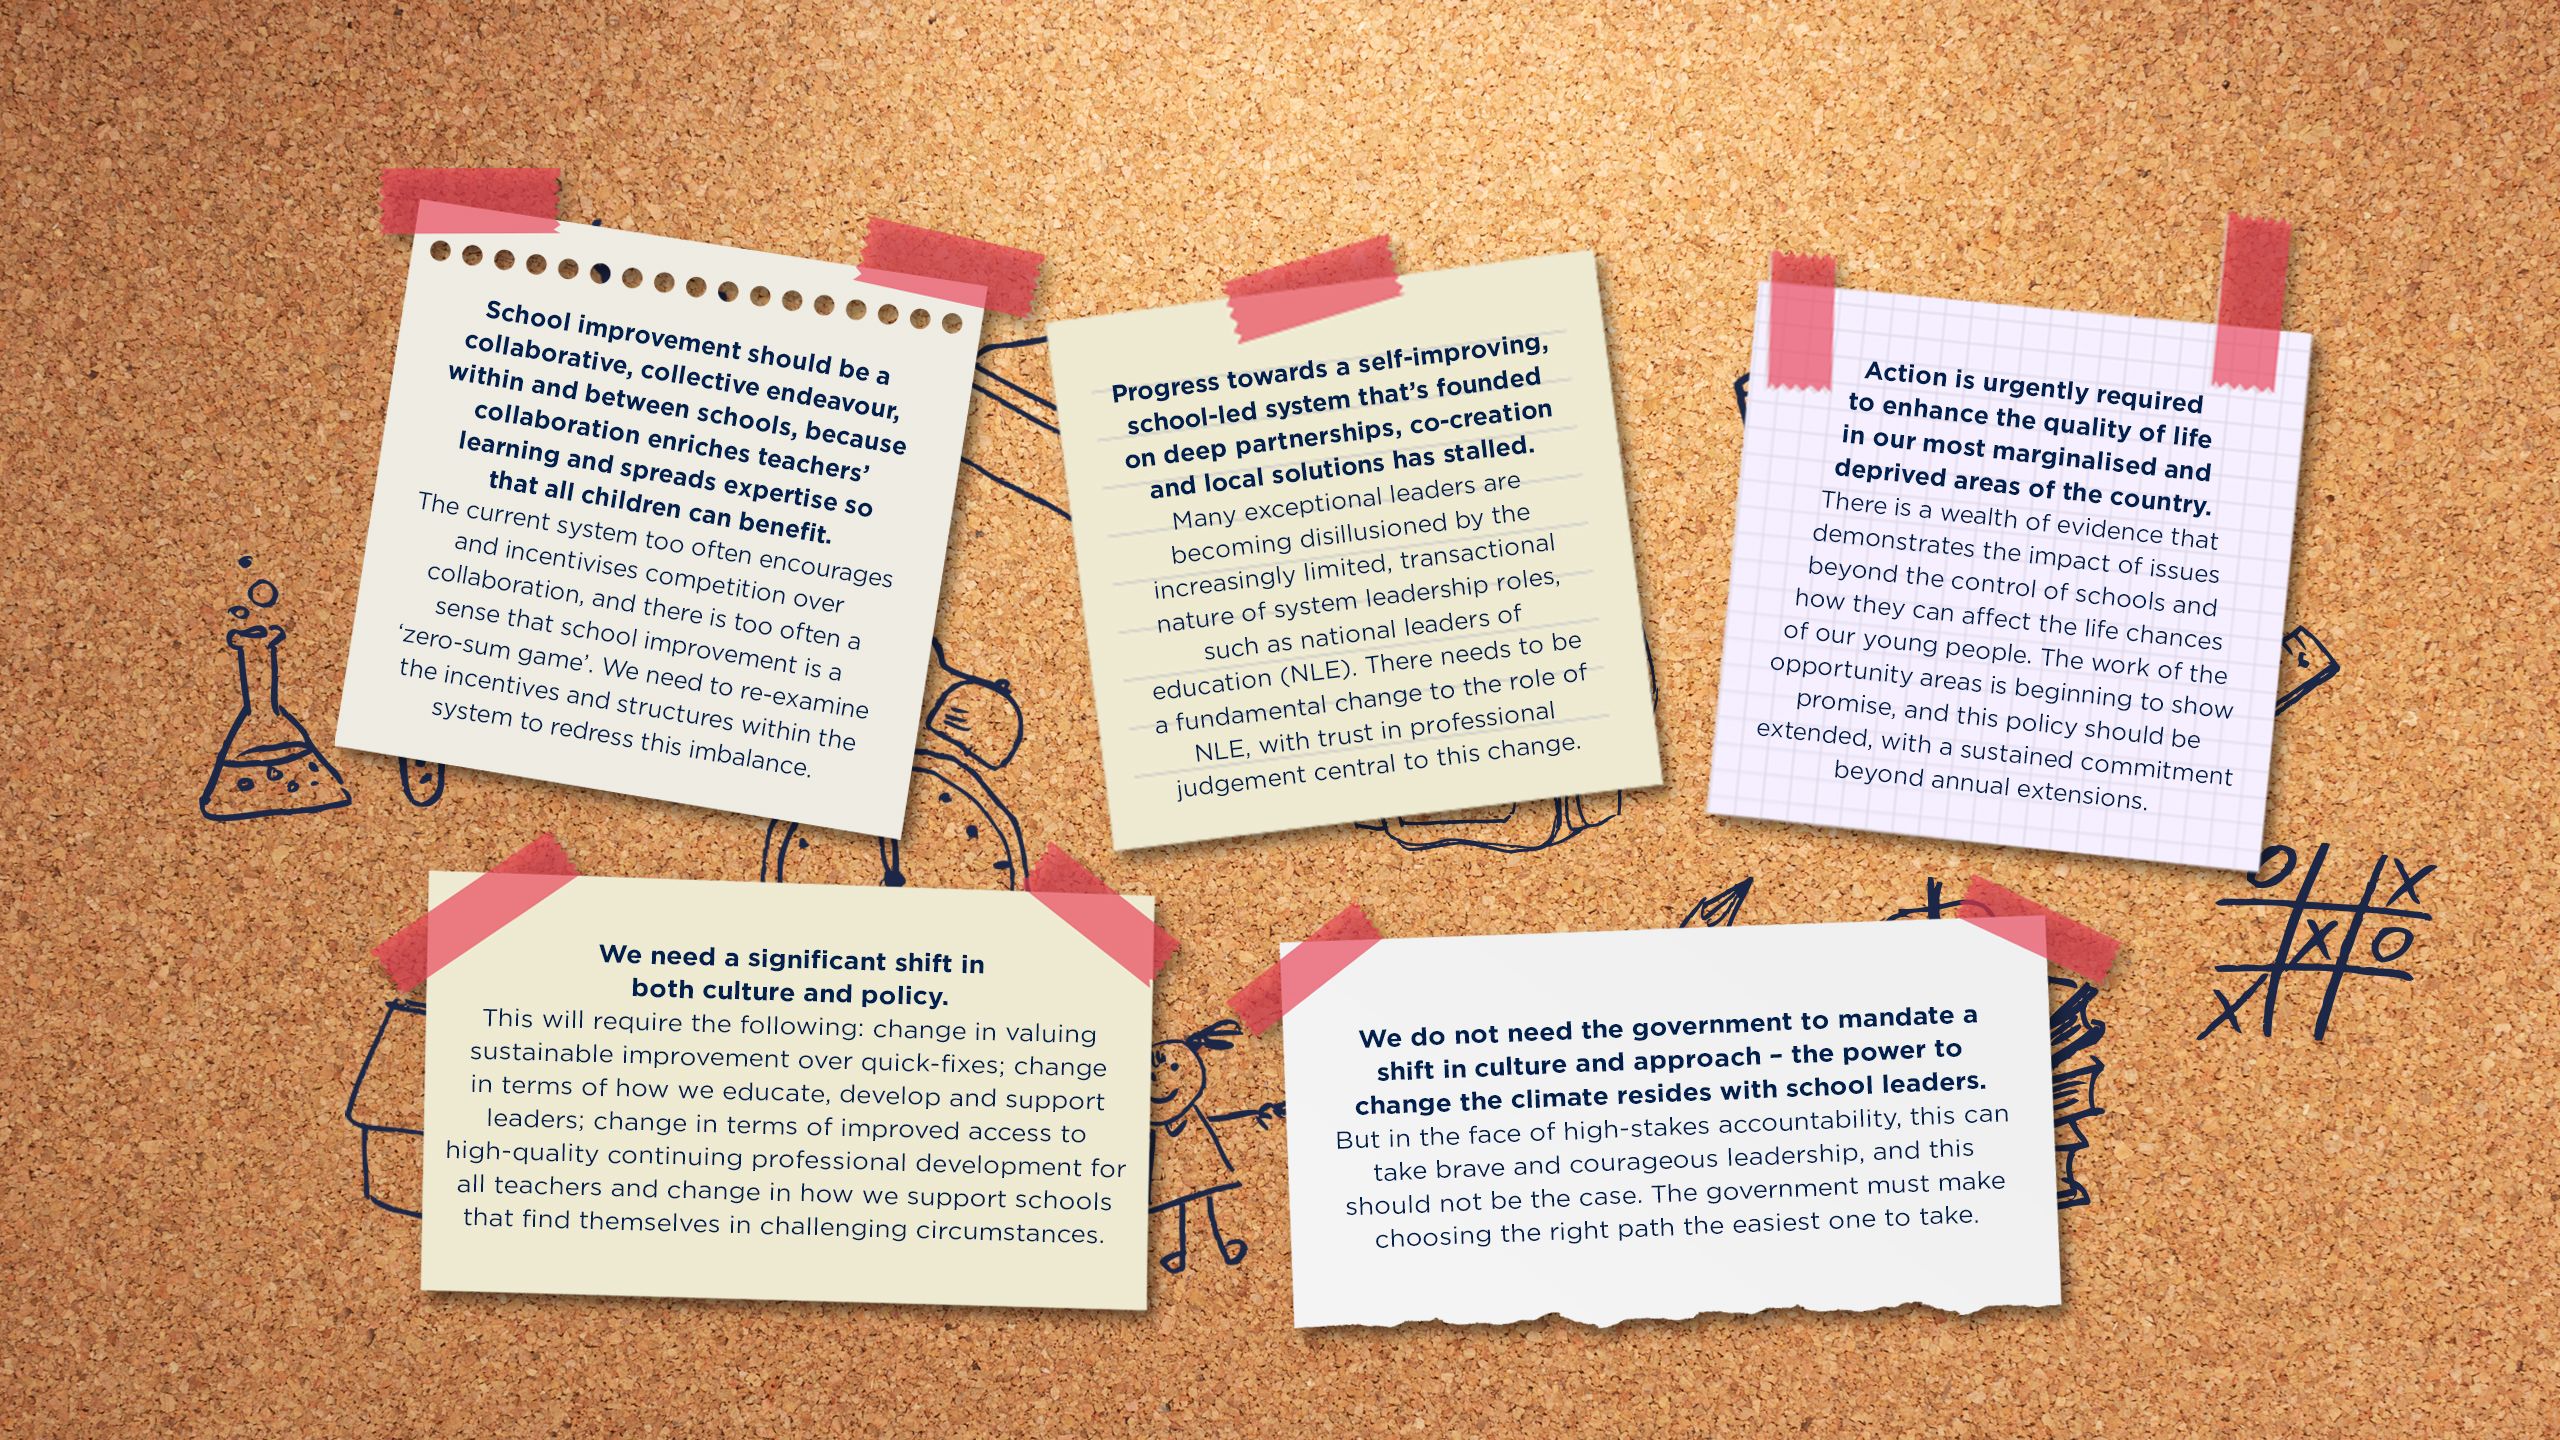 School improvement should be a
collaborative, collective endeavour,
within and between schools, because
collaboration enriches teachers’
learning and spreads expertise so
that all children can benefit.
The current system too often encourages
and incentivises competition over
collaboration, and there is too often a
sense that school improvement is a
‘zero-sum game’. We need to re-examine
the incentives and structures within the
system to redress this imbalance.
Progress towards a self-improving,
school-led system that’s founded
on deep partnerships, co-creation
and local solutions has stalled.
Many exceptional leaders are
becoming disillusioned by the
increasingly limited, transactional
nature of system leadership roles,
such as national leaders of
education (NLE). There needs to be
a fundamental change to the role of
NLE, with trust in professional
judgement central to this change.
Action is urgently required
to enhance the quality of life
in our most marginalised and
deprived areas of the country.
There is a wealth of evidence that
demonstrates the impact of issues
beyond the control of schools and
how they can affect the life chances
of our young people. The work of the
opportunity areas is beginning to show
promise, and this policy should be
extended, with a sustained commitment
beyond annual extensions.
We need a significant shift in
both culture and policy.
This will require the following: change in valuing
sustainable improvement over quick-fixes; change
in terms of how we educate, develop and support
leaders; change in terms of improved access to
high-quality continuing professional development for
all teachers and change in how we support schools
that find themselves in challenging circumstances.
We do not need the government to mandate a
shift in culture and approach – the power to
change the climate resides with school leaders.
But in the face of high-stakes accountability, this can
take brave and courageous leadership, and this
should not be the case. The government must make
choosing the right path the easiest one to take.
O X
X O
X